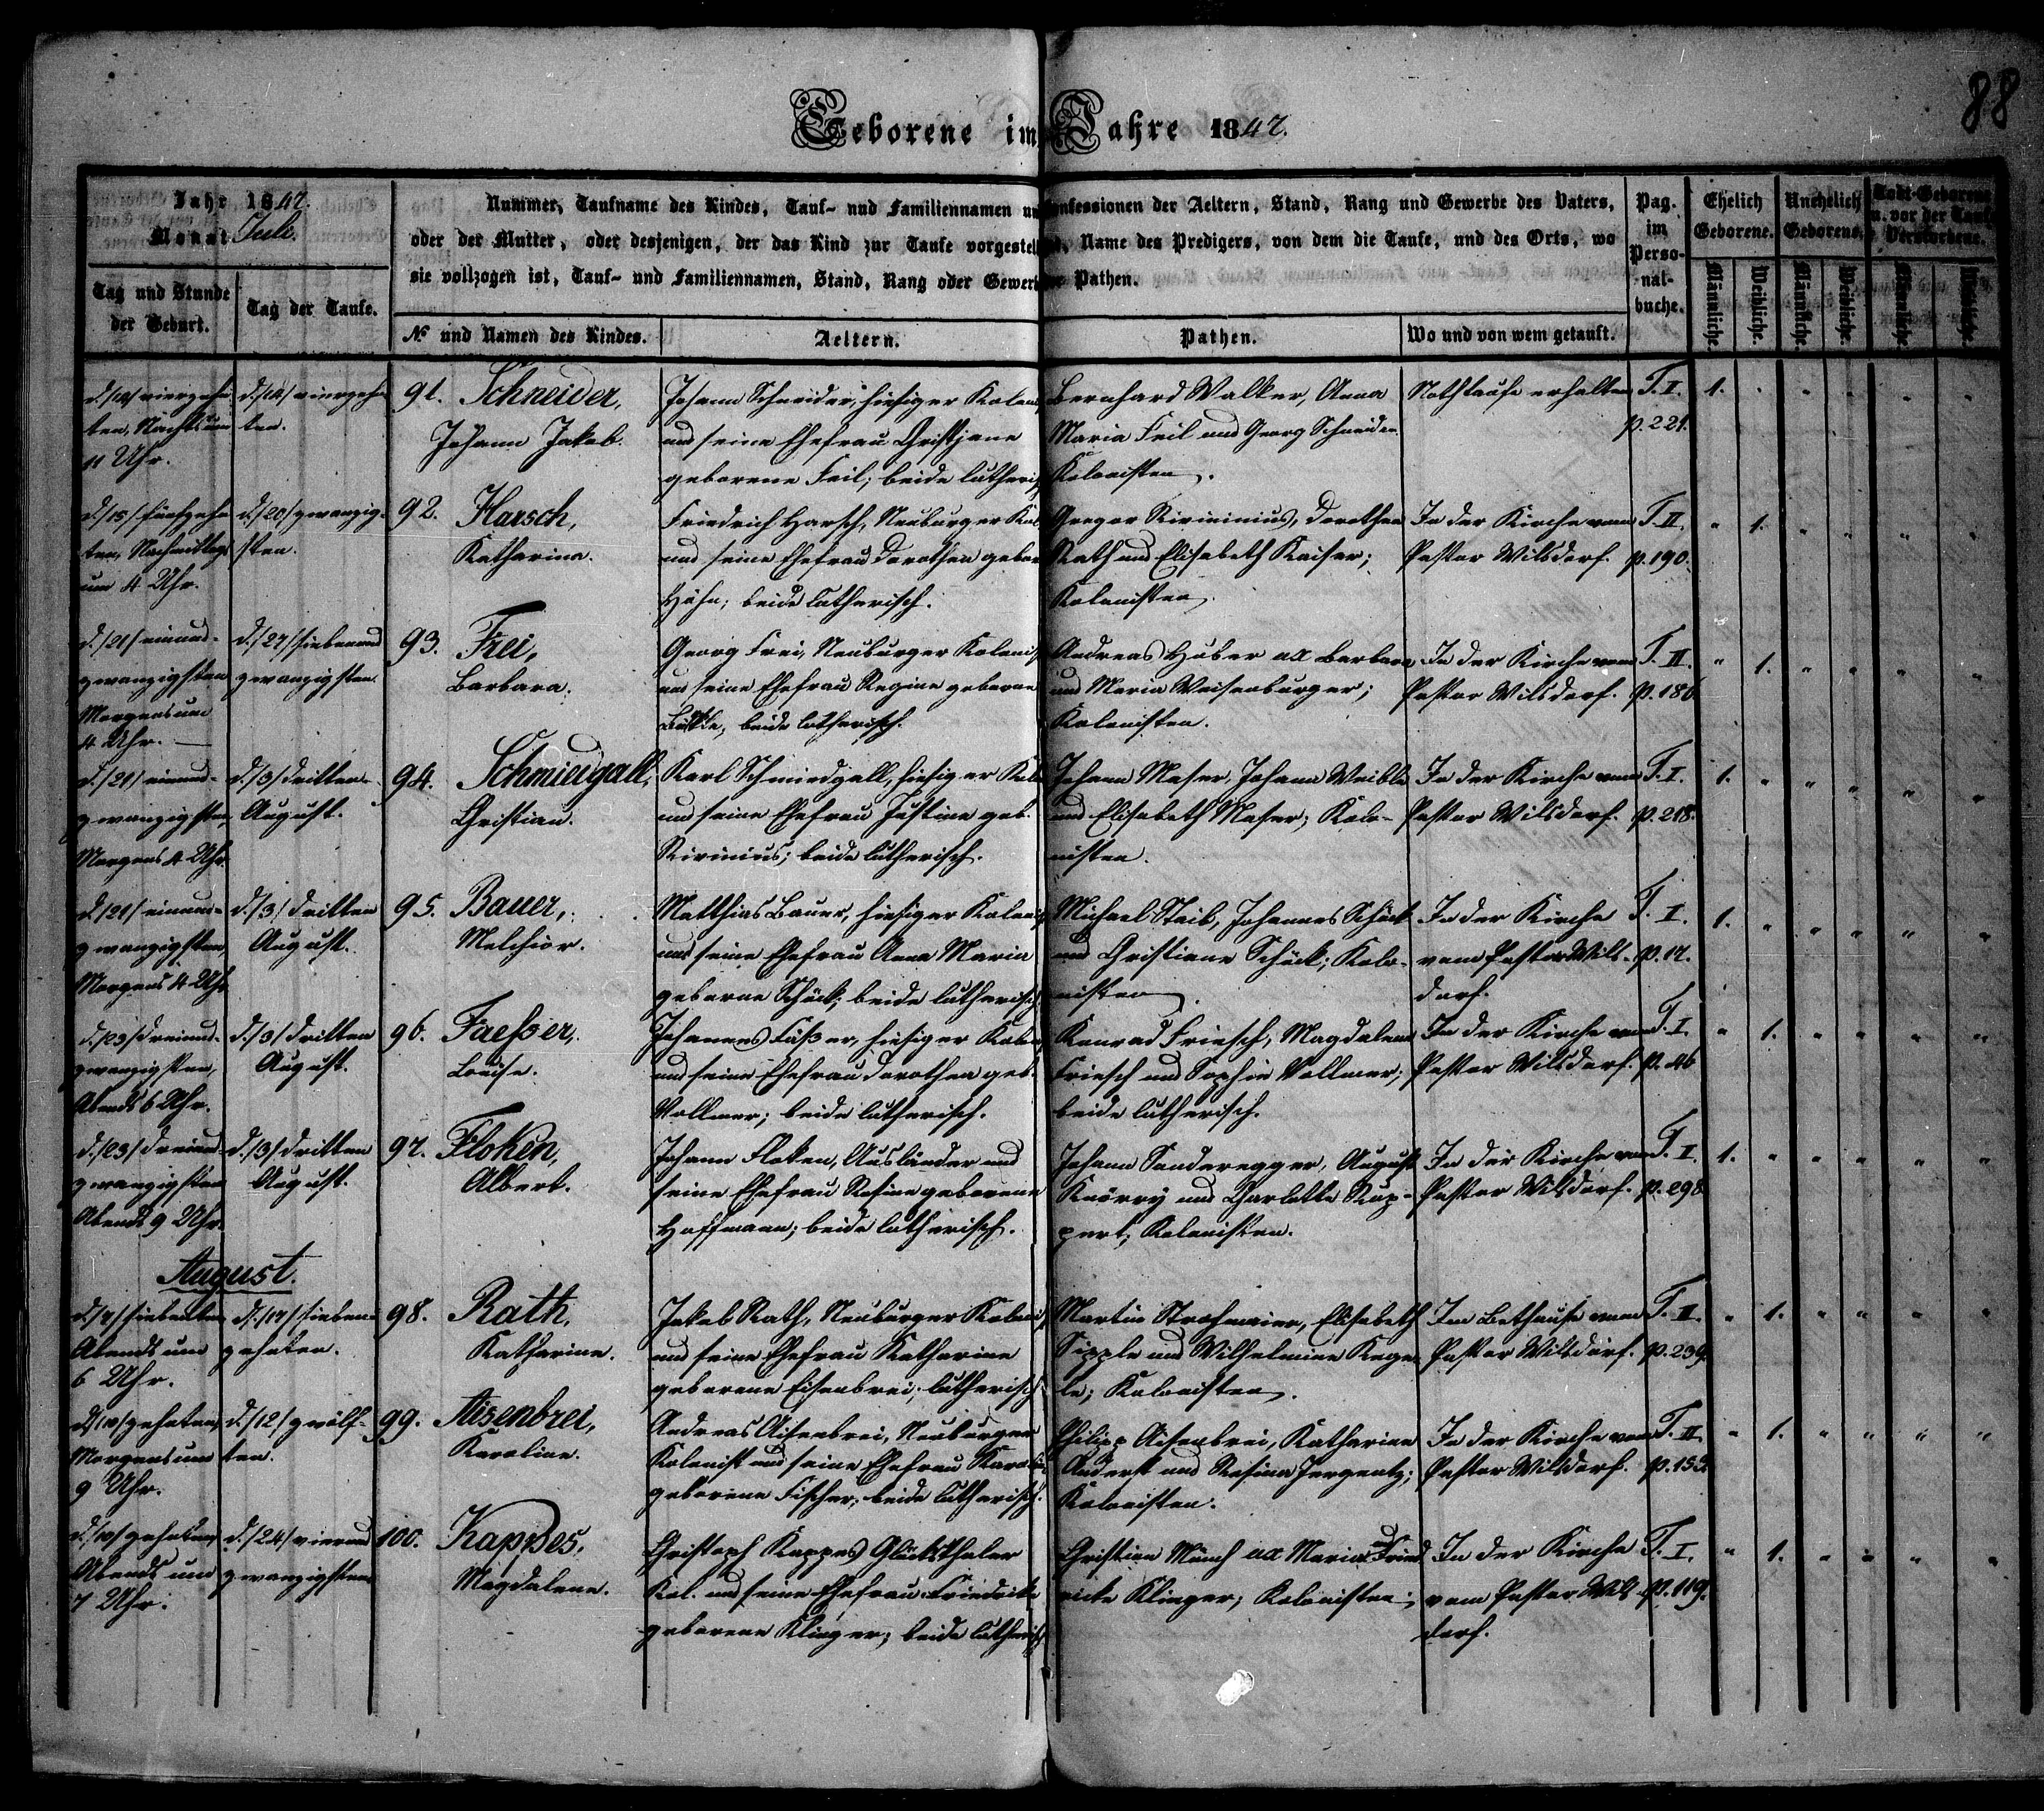 88
Geborene im Jahre 1847.
Jahr 1847.
Monat Juli.
Tag und Stunde der Geburt.
Tag der Taufe.
Nummer, Taufname des Kindes, Tauf- und Familiennamen und Confessionen der Aeltern, Stand, Rang und Gewerbe des Vaters,
oder der Mutter, oder desjenigen, der das Kind zur Taufe vorgestellt, Name des Predigers, von dem die Taufe, und des Orts, wo
sie vollzogen ist, Tauf- und Familiennamen, Stand, Rang oder Gewerbe der Pathen.
№ und Namen des Kindes.
Aeltern.
Pathen.
Wo und von wem getauft.
Pag. im Perso-nal-buche.
Ehelich Geborene.
Unehelich Geborene.
Todt-Geborene u. vor der Taufe Verstorbene.
Männliche. Weibliche. Männliche. Weibliche. Männliche. Weibliche.
d./14/ vierzehn
ten, Nachts um
11 Uhr.
d./14/ vierzehn
ten.
91. Schneider,
Johann Jakob.
Johann Schneider, hiesiger Kolon.
und seine Ehefrau Christjane
geborene Feil; beide lutherisch
Bernhard Walker, Anna
Maria Feil und Georg Schneider
Kolonisten.
Nothtaufe erhalten
T. I.
p. 221.
1.
d./15/ fünfzehn
ten, Nachmittags
um 4 Uhr.
d./20/ zwanzig-
sten.
92. Harsch,
Katharina.
Friedrich Harsch, Neuburger Kol.
und seine Ehefrau Dorothea gebor
Höhn; beide lutherisch.
Gregor Rivininius, Dorothea
Rath und Elisabeth Kaiser;
Kolonisten.
In der Kirche vom
Pastor Wilsdorf.
T. II.
p. 190.
1.
d./21/ einund-
zwanzigsten
Morgens um
4 Uhr.
d./27/ siebenund
zwanzigsten.
93. Frei,
Barbara.
Georg Frei, Neuburger Kolonist
und seine Ehefrau Regine geborne
beide lutherisch.
Andreas Huber ux Barbara
und Maria Weisenburger;
Kolonisten.
In der Kirche vom
Pastor Wilsdorf.
T. II.
p. 186
1.
d./21/ einund-
zwanzigsten,
Morgens 4 Uhr.
d./3/ dritten
August.
94. Schmiedgall,
Christian.
Karl Schmiedgall, hiesiger Kol.
und seine Ehefrau Justine geb.
Rivinius; beide lutherisch.
Johann Maser, Johann Weible
und Elisabeth Maser; Kolo-
nisten.
In der Kirche vom
Pastor Wilsdorf.
T. I.
p. 218.
1.
d./21/ einund-
zwanzigsten,
Morgens 4 Uhr
d./3/ dritten
August.
95. Bauer,
Melchior.
Matthias Bauer, hiesiger Kolonist
und seine Ehefrau Anna Maria
geborne Schöck; beide lutherisch.
Michael Staib, Johannes Schöck
und Christiane Schöck; Kolo-
nisten.
In der Kirche
vom Pastor Wils-
dorf.
T. I.
p. 17.
1.
d./23/ dreiund-
zwanzigsten,
Abends 6 Uhr.
d./3/ dritten
August.
96. Faesser,
Louise.
Johannes Fäßer, hiesiger Kolon.
und seine Ehefrau Dorothea geb.
Vollmer; beide lutherisch.
Konrad Friesch, Magdalena
Friesch und Sophie Vollmer;
beide lutherisch.
In der Kirche vom
Pastor Wilsdorf.
T. I.
p. 46
1.
d./23/ dreiund-
zwanzigsten
Abends 9 Uhr.
d./3/ dritten
August.
97. Floken,
Albert.
Johann Floken, Ausländer und
seine Ehefrau Rosine geborene
Hoffmann; beide lutherisch.
Johann Sonderegger, August
Knörry und Charlotte Rup-
pert; Kolonisten.
In der Kirche vom
Pastor Wilsdorf.
T. I.
p. 298
1.
August.
d./7/ siebenten
Abends um
6 Uhr.
d./17/ sieben-
zehnten.
98. Rath,
Katharine.
Jakob Rath, Neuburger Kolonist
und seine Ehefrau Katharine
geborene Eisenbrei; lutherisch
Martin Strohmaier, Elisabeth
Sipple und Wilhelmine Kege
le; Kolonisten.
Im Bethause vom
Pastor Wilsdorf.
T. II.
p. 239.
1.
d./10/ zehnten,
Morgens um
9 Uhr.
d./12/ zwölf-
ten.
99. Aisenbrei,
Karoline.
Andreas Aisenbrei, Neuburger
Kolonist und seine Ehefrau Karolin
geborene Fischer; beide lutherisch.
Philipp Aisenbrei, Katharine
Anderst und Rosina Jergentz;
Kolonisten.
In der Kirche vom
Pastor Wilsdorf.
T. II.
p. 153.
1.
d./10/ zehnten,
Abends um
7 Uhr.
d./24/ vierund
zwanzigsten
100. Kappes,
Magdalene.
Christoph Kappes Glücksthaler
Kol. und seine Ehefrau Friedrike
geborene Klinger; beide lutherisch
Christian Münch ux Maria Fried
ricke Klinger; Kolonisten;
In der Kirche
vom Pastor Wils-
dorf.
T. I.
p. 119.
1.